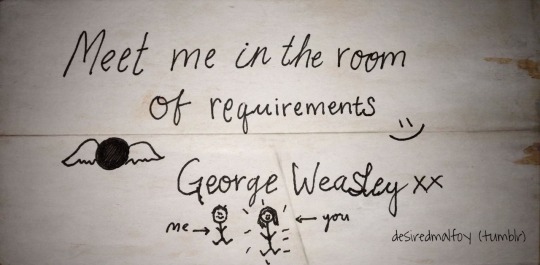 Meet me in the room
of requirements
George Weasley xx
me
you
desiredmalfoy (tumblr)